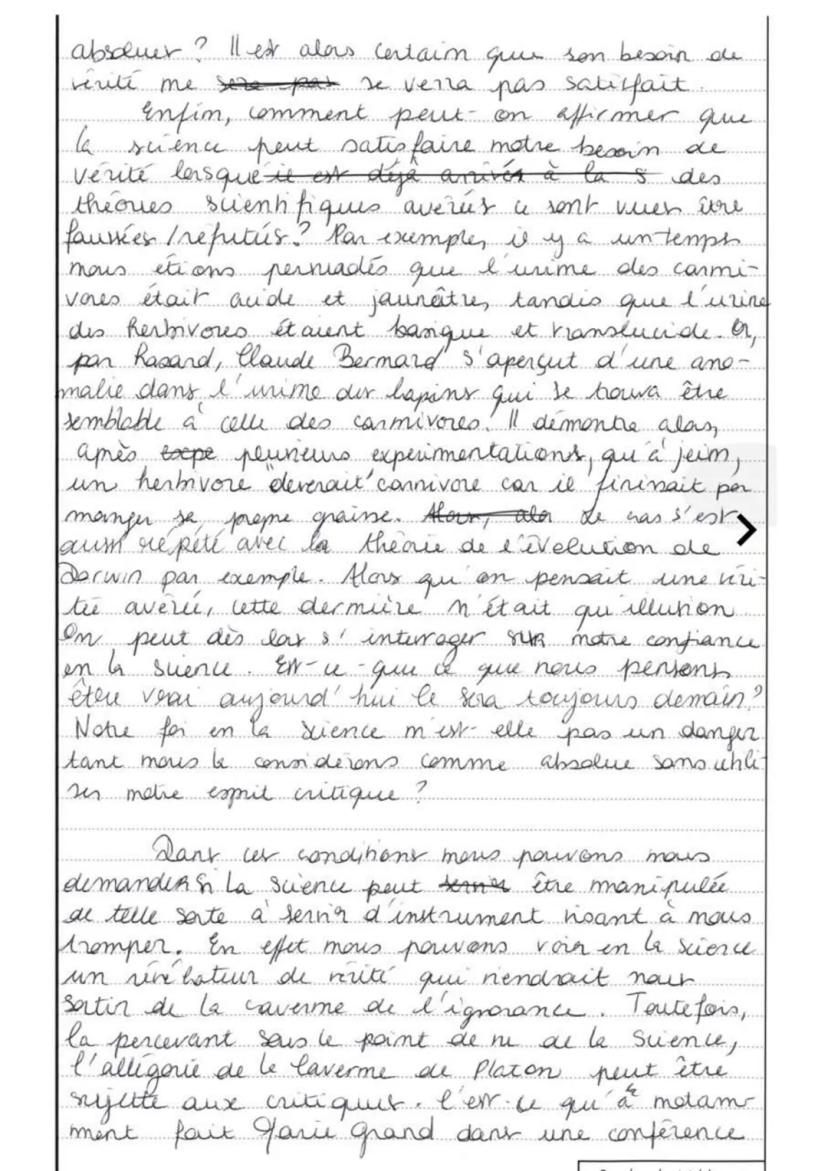 absolues ? Il est alors certain que son besoin de
vérité ne sera pas se verra pas satisfait.
Enfin, comment peut-on affirmer que
la science peut satisfaire notre besoin de
vérité lorsque il est déjà arrivé à la s des
théories scientifiques averées ce sont vues être
faussées / réfutées ? Par exemple, il y a un temps
nous étions persuadés que l'urine des carni-
vores était acide et jaunâtre, tandis que l'urine
des herbivores étaient basique et translucide. Or,
par hasard, Claude Bernard s'aperçut d'une ano-
malie dans l'urine des lapins qui se trouva être
semblable à celle des carnivores. Il démontra alors,
après plusieurs expérimentations, qu'à jeun,
un herbivore "devenait" carnivore car il finissait par
manger sa propre graisse. Alors, alo Le cas s'est
aussi répété avec la théorie de l'évolution de
Darwin par exemple. Alors qu'on pensait une véri-
tée averée, cette dernière n'était qu'illusion
On peut dès lors s'interroger sur notre confiance
en la science. Est-ce-que ce que nous pensons
être vrai aujourd'hui le sera toujours demain ?
Notre foi en la science n'est-elle pas un danger
tant nous la considérons comme absolue sans utili-
ser notre esprit critique ?
Dans ces conditions nous pouvons nous
demander si la science peut servir être manipulée
de telle sorte à servir d'instrument visant à nous
tromper. En effet nous pouvons voir en la science
un révélateur de vérité qui viendrait nous
sortir de la caverne de l'ignorance. Toutefois,
la percevant sous le point de vue de la science,
l'allégorie de la Caverne de Platon peut être
sujette aux critiques. C'est-ce qu'a notam-
ment fait Marie Grand dans une conférence